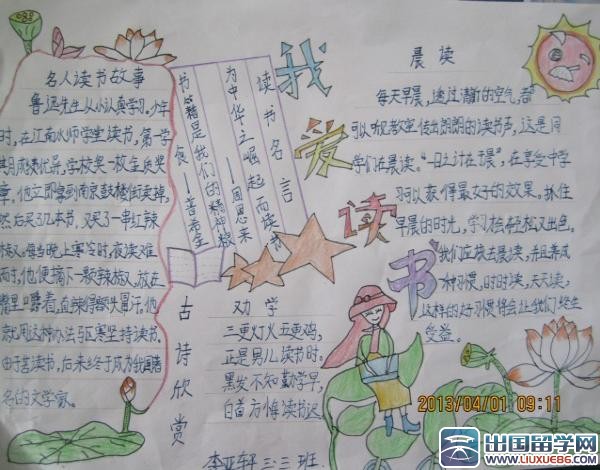 名人读书故事
鲁迅先生从小认真学习。少年
时，在江南水师学堂读书，第一学
期成绩优异，学校奖一枚金质奖
章。他立即拿到南京鼓楼街卖掉，
然后买了几本书，又买了一串红辣
椒。每当晚上寒冷时，夜读难
耐时，他便摘下一颗辣椒，放在
嘴里嚼着，直辣得额头冒汗。他
就用这种办法驱寒坚持读书。
由于苦读书，后来终于成为我国著
名的文学家。
读书名言
为中华之崛起而读书
——周恩来
书籍是我们的精神粮
食——普希金
我爱读书
晨读
每天早晨，透过清新的空气，都
可以听见教室传出朗朗的读书声，这是同
学们在晨读。“一日之计在于晨”，在享受中学
习可以获得最好的效果。抓住
早晨的时光，学习会轻松又出色。
我们应该去晨读，并且养成
一种习惯，时时读，天天读，
这样的好习惯将会让我们终生
受益。
古诗欣赏
劝学
三更灯火五更鸡，
正是男儿读书时。
黑发不知勤学早，
白首方悔读书迟。
李亚轩 三.三班
2013/04/01 09:11
出国留学网
WWW.LIUXUE86.COM